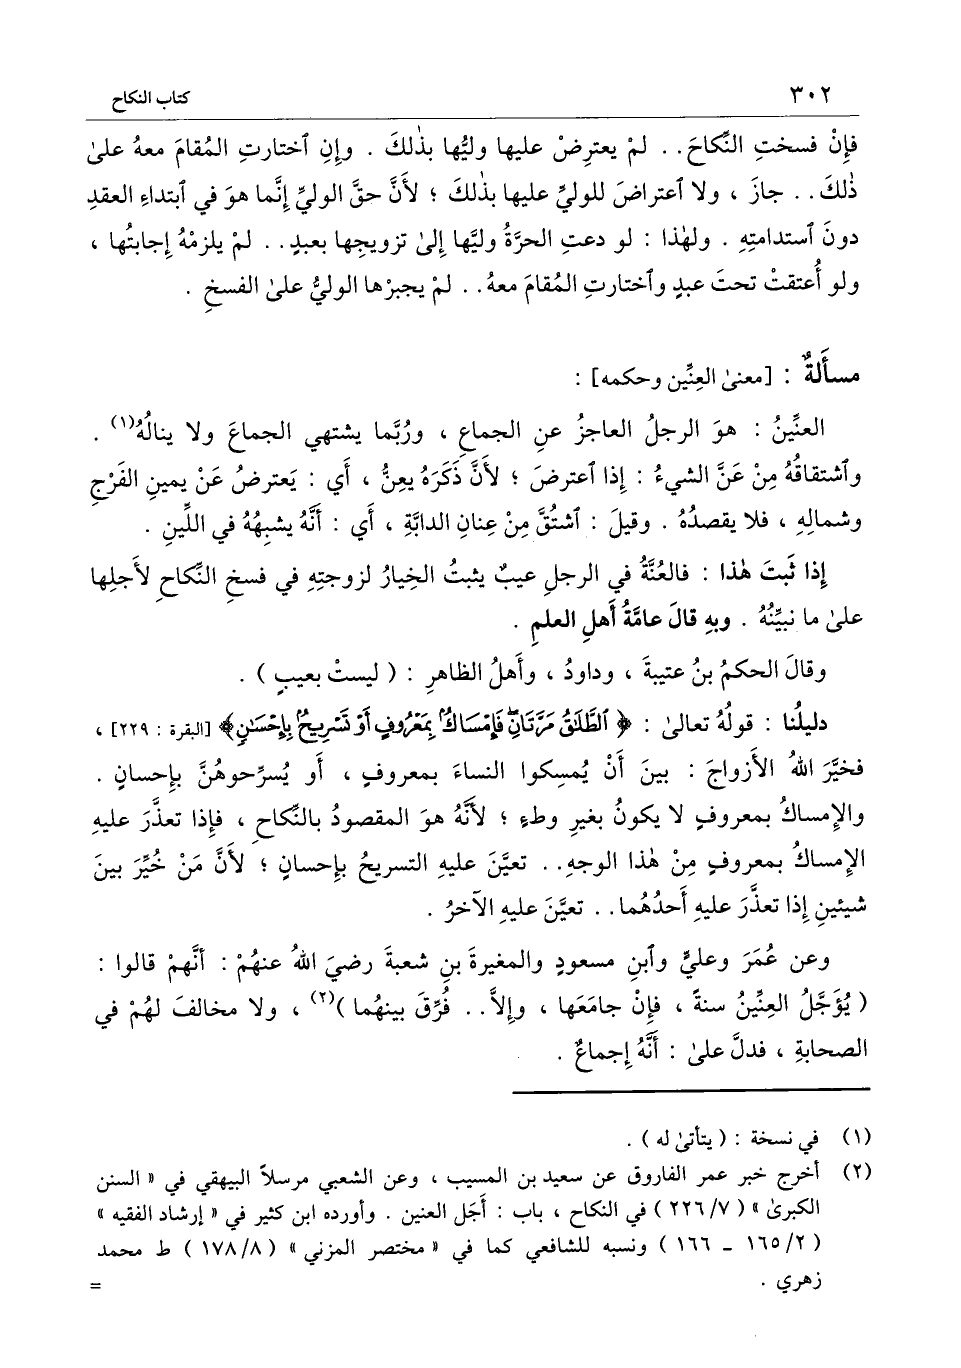 ٣٠٢ كتاب النكاح
فإِنْ فسختِ النِّكاحَ.. لمْ يعترِضْ عليها وليُّها بذٰلكَ . وإِنِ ٱختارتِ المُقامَ معهُ علىٰ
ذٰلكَ.. جازَ ، ولا ٱعتراضَ للوليِّ عليها بذٰلكَ ؛ لأَنَّ حقَّ الوليِّ إِنَّما هوَ في ٱبتداءِ العقدِ
دونَ ٱستدامتِهِ . ولهٰذا : لو دعتِ الحرَّةُ وليَّها إِلىٰ تزويجِها بعبدٍ.. لمْ يلزمْهُ إِجابتُها ،
ولو أُعتقتْ تحتَ عبدٍ وٱختارتِ المُقامَ معهُ.. لمْ يجبرْها الوليُّ علىٰ الفسخِ .
مسأَلةٌ : [معنىٰ العِنِّين وحكمه] :
العنِّينُ : هوَ الرجلُ العاجزُ عنِ الجماعِ ، ورُبَّما يشتهي الجماعَ ولا ينالُهُ(١) .
وٱشتقاقُهُ مِنْ عَنَّ الشيءُ : إِذا ٱعترضَ ؛ لأَنَّ ذَكَرَهُ يعِنُّ ، أَي : يَعترضُ عَنْ يمينِ الفَرْجِ
وشمالِهِ ، فلا يقصدُهُ . وقيلَ : ٱشتُقَّ مِنْ عِنانِ الدابَّةِ ، أَي : أَنَّهُ يشبهُهُ في اللِّينِ .
إِذا ثَبتَ هٰذا : فالعُنَّةُ في الرجلِ عيبٌ يثبتُ الخِيارُ لزوجتِهِ في فسخِ النِّكاحِ لأَجلِها
علىٰ ما نبيِّنُهُ . وبهِ قالَ عامَّةُ أَهلِ العلمِ .
وقالَ الحكمُ بنُ عتيبةَ ، وداودُ ، وأَهلُ الظاهرِ : ( ليستْ بعيبٍ ) .
دليلُنا : قولُهُ تعالىٰ : ﴿ ٱلطَّلَٰقُ مَرَّتَانِ فَإِمْسَاكٌ بِمَعْرُوفٍ أَوْ تَسْرِيحٌ بِإِحْسَٰنٍ﴾ [البقرة : ٢٢٩] ،
فخيَّرَ اللهُ الأَزواجَ : بينَ أَنْ يُمسِكوا النساءَ بمعروفٍ ، أَو يُسرِّحوهُنَّ بإِحسانٍ .
والإِمساكُ بمعروفٍ لا يكونُ بغيرِ وطءٍ ؛ لأَنَّهُ هوَ المقصودُ بالنِّكاحِ ، فإِذا تعذَّرَ عليهِ
الإِمساكُ بمعروفٍ مِنْ هٰذا الوجهِ.. تعيَّنَ عليهِ التسريحُ بإِحسانٍ ؛ لأَنَّ مَنْ خُيِّرَ بينَ
شيئينِ إِذا تعذَّرَ عليهِ أَحدُهُما.. تعيَّنَ عليهِ الآخرُ .
وعن عُمَرَ وعليٍّ وٱبنِ مسعودٍ والمغيرةَ بنِ شعبةَ رضيَ اللهُ عنهُمْ : أَنَّهمْ قالوا :
( يُؤَجَّلُ العِنِّينُ سنةً ، فإِنْ جامَعَها ، وإِلاَّ.. فُرِّقَ بينهُما )(٢) ، ولا مخالفَ لهُمْ في
الصحابةِ ، فدلَّ علىٰ : أَنَّهُ إِجماعٌ .
(١) في نسخة : ( يتأتىٰ له ) .
(٢) أخرج خبر عمر الفاروق عن سعيد بن المسيب ، وعن الشعبي مرسلاً البيهقي في « السنن
الكبرىٰ » ( ٢٢٦/٧ ) في النكاح ، باب : أجَل العنين . وأورده ابن كثير في « إرشاد الفقيه »
( ١٦٥/٢ ـ ١٦٦ ) ونسبه للشافعي كما في « مختصر المزني » ( ١٧٨/٨ ) ط محمد
زهري . =